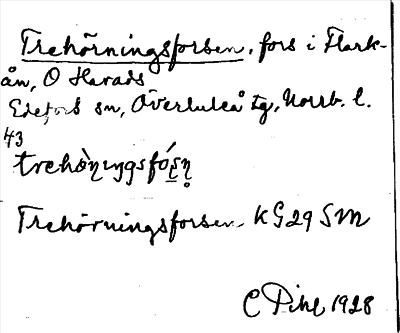 Trehörningsforsen, fors i Flark-
ån, O Harads
Edefors sn, Överluleå tg, Norrb. l.
43
trehòṇıŋgsfórṣṇ̥
Trehörningsforsen KG29 SM
C Pihl 1928